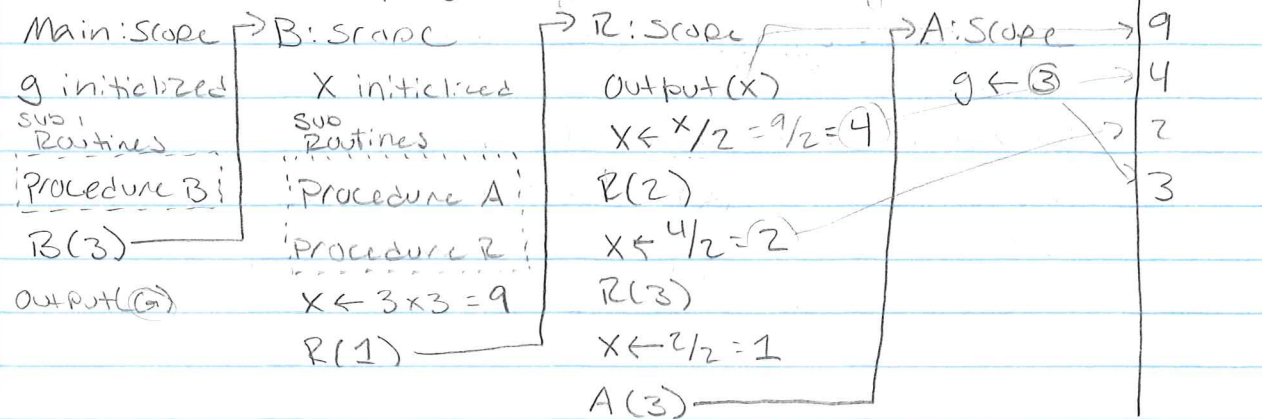 Main:Scope
g initialized
Sub
Routines
Procedure B
B(3)
Output(G)
B:Scope
X initialized
Sub
Routines
Procedure A
Procedure R
X ← 3x3 = 9
R(1)
R:Scope
Output(x)
X ← x/2 = 9/2 = 4
R(2)
X ← 4/2 = 2
R(3)
X ← 2/2 = 1
A(3)
A:Scope
g ← 3
9
4
2
3